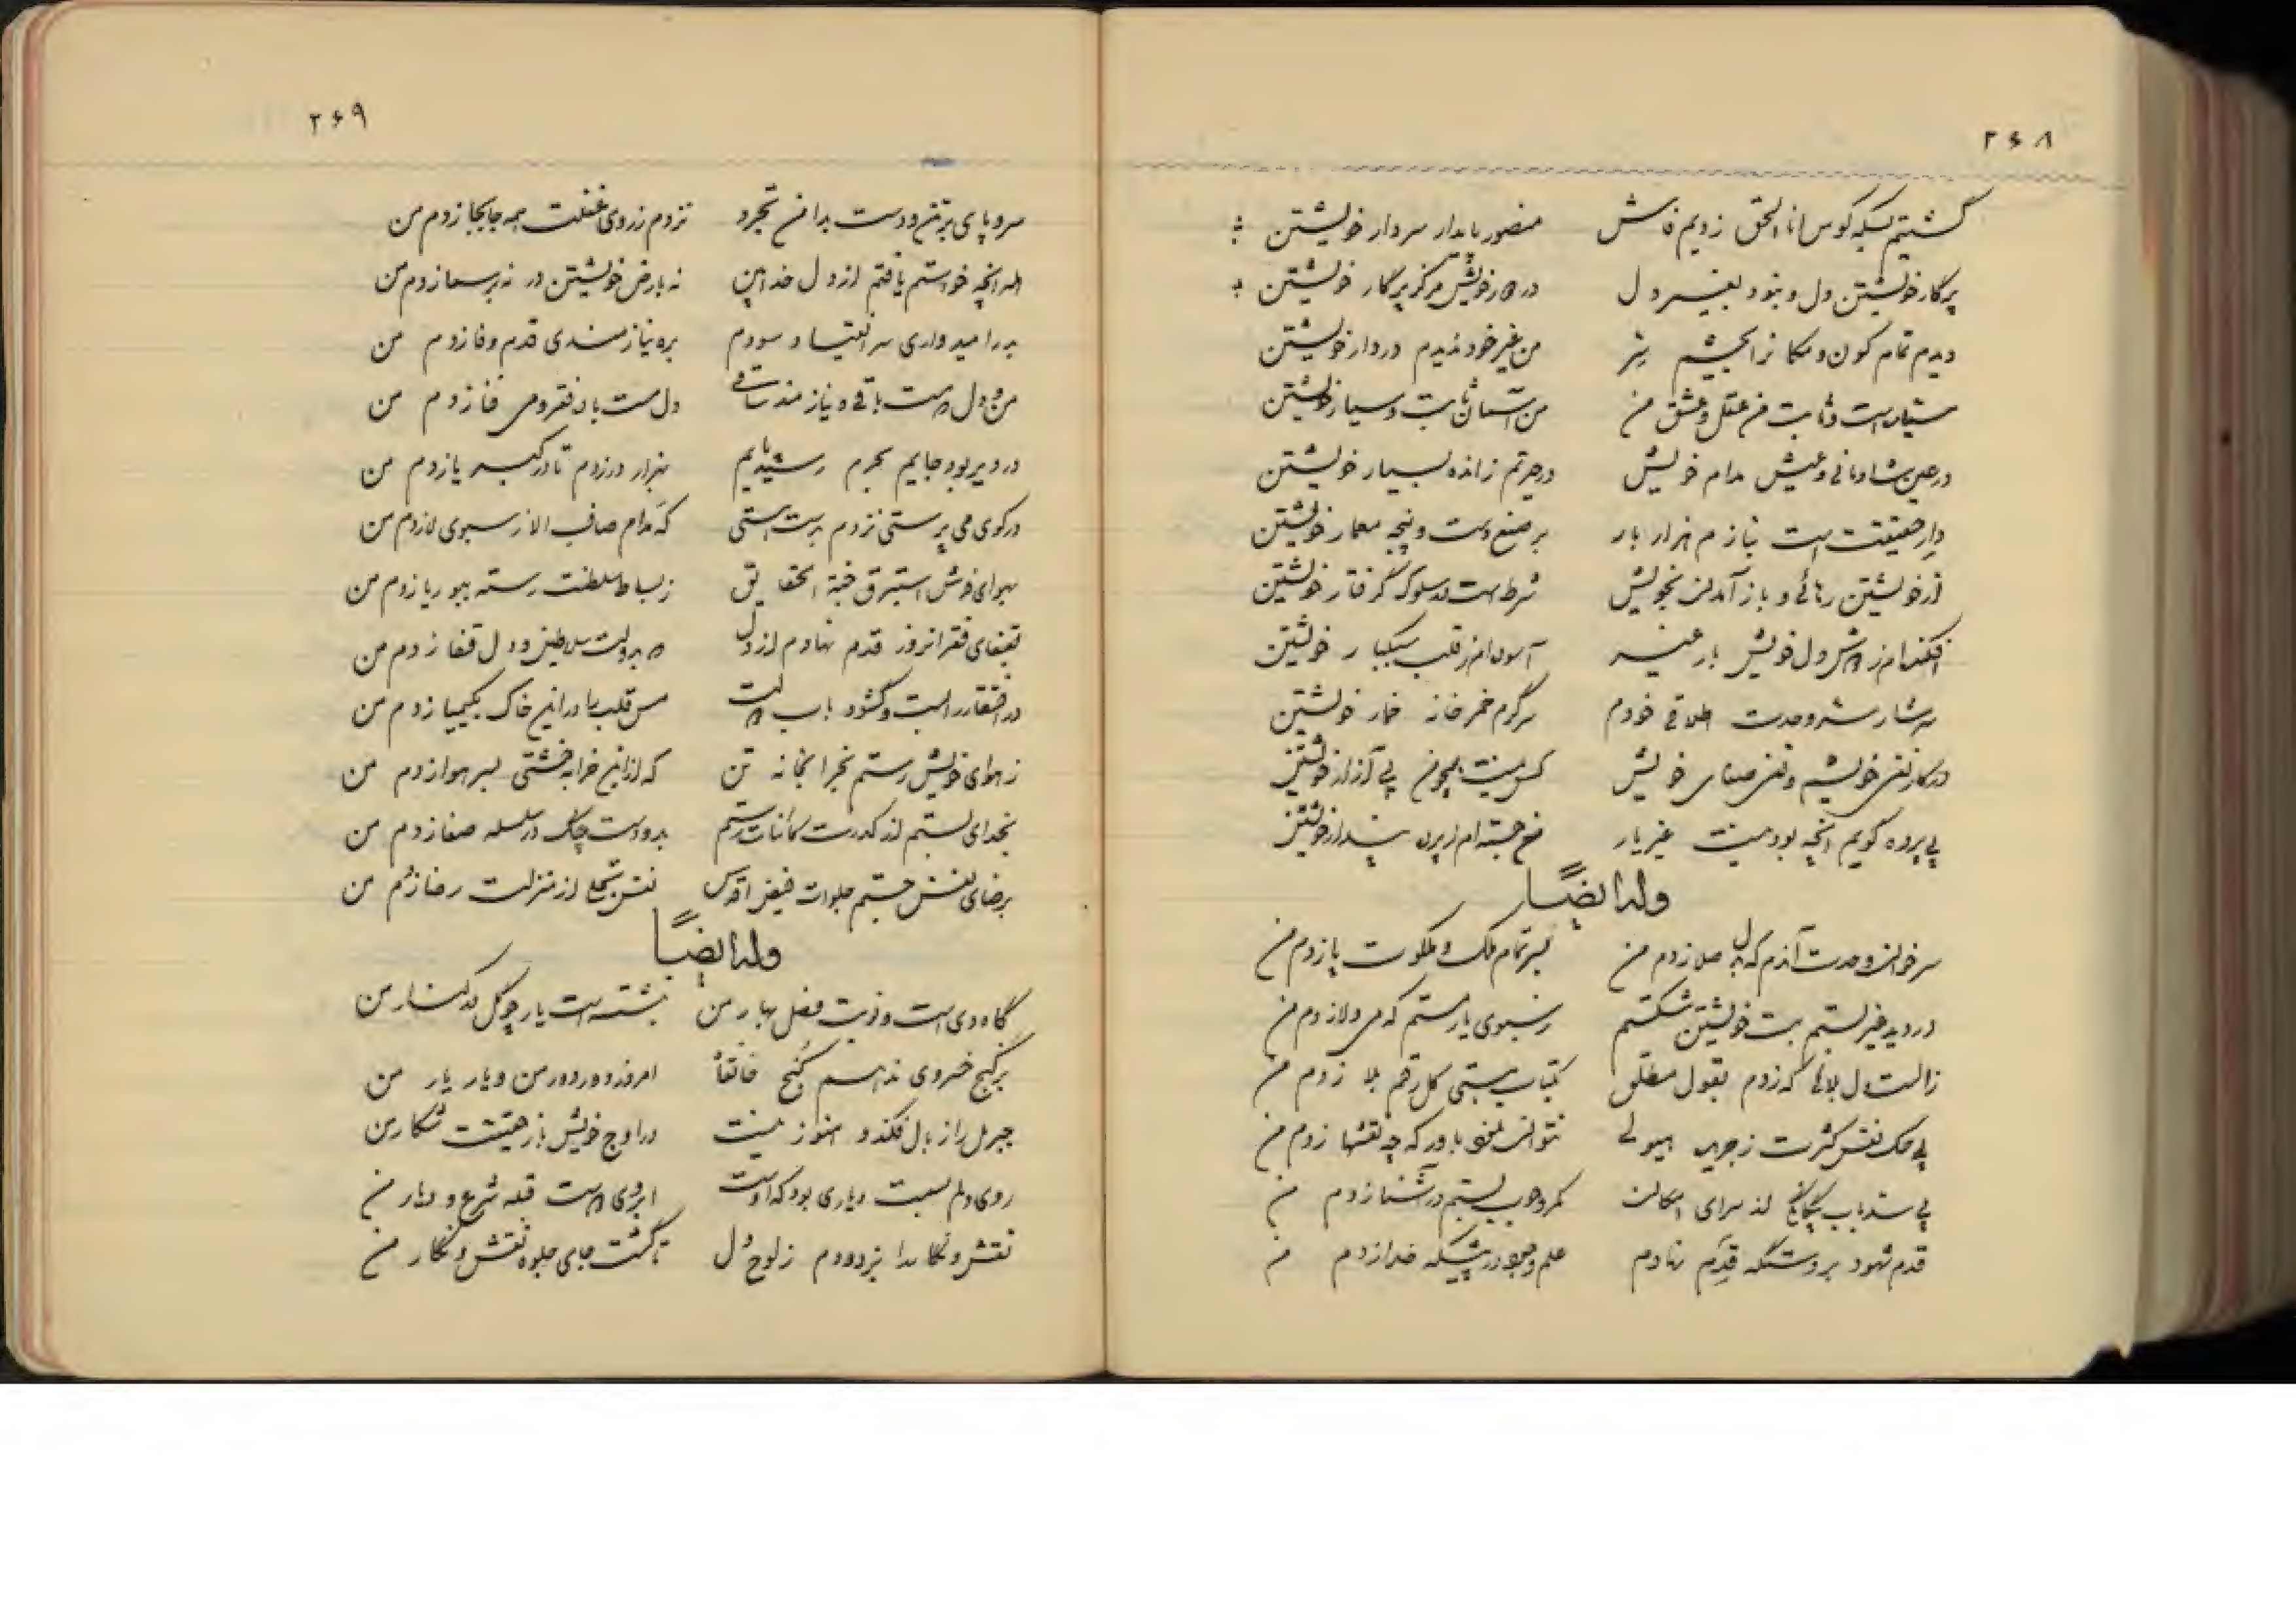 ۲۶۸
گشتیم یکه کوس انا الحق زدیم فاش منصور پایدار سردار خویشتن
پرگار خویشتن دل و بنود بغیر دل در کار خویش مرکز پرگار خویشتن
دیدم تمام کون و مکانرا بچشم سر من غیر خود ندیدم در دار خویشتن
سیار است و ثابت من عقل و عشق من من آسمان ثابت و سیار خویشتن
در عین شادمانی و عیش مدام خویش در حیرتم ز انده بسیار خویشتن
دار حقیقت است نیازم هزار بار بر صنع دست و پنجه معمار خویشتن
از خویشتن رهائی و باز آمدن بخویش شرط است در سلوک گرفتار خویشتن
افکنده‌ام ز دوش دل خویش بار غیر آسوده‌ام ز قلب سبکبار خویشتن
سرشار سر وحدت اطلاقی خودم سرگرم خمر خانه خمار خویشتن
در کار نفی خویشم و نفی صفات خویش کس نیست همچو من پی آزار خویشتن
بی پرده گویم آنچه بود نیست غیر یار من جسته‌ام از پرده پندار خویشتن
وله ایضاً
سر خوان وحدت آندم که دل صلا زدم من بسر تمام ملک و ملکوت پا زدم من
در دید غیر بستم بت خویشتن شکستم ز سبوی یار مستم که می ولا زدم من
ز الست دل بلائی که زدم بقول مطلق بکتاب هستی کل رقم بلا زدم من
پی حک نقش کثرت ز جریده هیولی نتوان نمود باور که چه نقشها زدم من
پی سد باب بیگانگی از سرای امکان کمر وجوب بستم در آشنا زدم من
قدم شهود بر دستگه قدم نهادم علم وجود در پیشگه خدا زدم من
۲۶۹
سر و پای بر تن و دست بدامن تجرد نزدم ز روی غفلت همه جا بجا زدم من
هر آنچه خواستم یافتم از دل خدابین نه بارض خویشتن در نه بر سما زدم من
بدر امیدواری سر انقیاد سودم بره نیازمندی قدم وفا زدم من
من و دل دو مست باقی و نیازمند ساقی دل مست باده فقر و می فنا زدم من
در دیر بود جایم بحرم رسید پایم بهزار در زدم تا در کبریا زدم من
در کوی می پرستی نزدم بدست هستی که مدام صاف الا ز سبوی لا زدم من
بهوای فرش استبرق جنة الحقایق ز بساط سلطنت رسته ببوریا زدم من
بقفای فقر آنروز قدم نهادم از دل که بدولت سلاطین ز دل قفا زدم من
در افتقار را بست و گشود باب دولت مس قلب را در این خاک بکیمیا زدم من
ز هوای خویش رستم بخرابخانه تن که از این خرابه خشتی بسر هوا زدم من
بخدای بستم از کدرت کائنات رستم بدو دست چنگ در سلسله صفا زدم من
برضای نفس جستم جلوات فیض اقدس نفس تجلی از منزلت رضا زدم من
وله ایضاً
گاه دی است و نوبت فصل بهار من بنشسته است یار چو گل در کنار من
بر گنج خسروی ندهم کنج خانقاه امروز دور دور من و یار یار من
جبریل را ز بال فکند و هنوز نیست در اوج خویش باز حقیقت شکار من
روی دلم بسمت دیاری بود که اوست ابروی دوست قبله شرع و دیار من
نقش و نگار را بزدودم ز لوح دل تا گشت جای جلوه نقش و نگار من